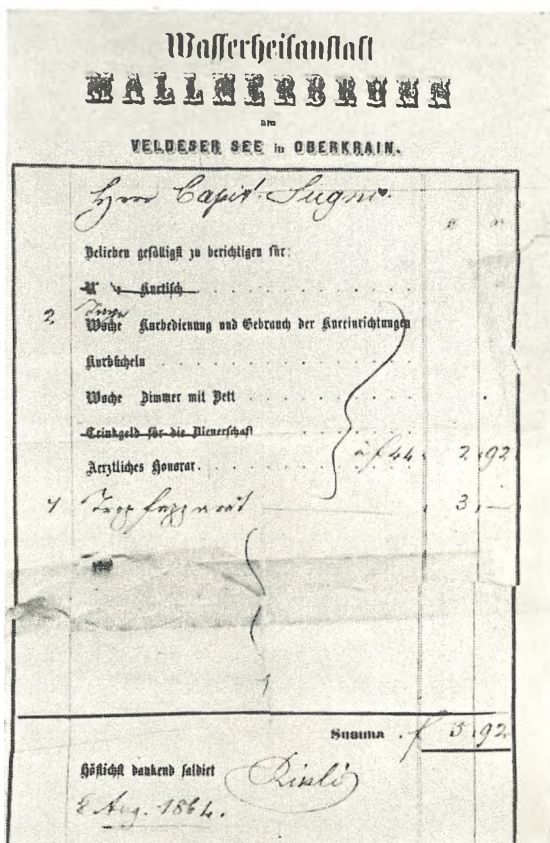 Wasserheilanstalt
MALLNERBRUNN
am
VELDESER SEE in OBERKRAIN.
Herr Capit.
Belieben gefälligst zu berichtigen für:
Kurtisch
2 Tage
Woche Kurbedienung und Gebrauch der Kureinrichtungen
Kurbücheln
Woche Zimmer mit Bett
Trinkgeld für die Dienerschaft
Aerztliches Honorar. à f 44 2 92
3 —
Summa f 5 92
Höflichst dankend saldirt Rikli
8 Aug. 1864.